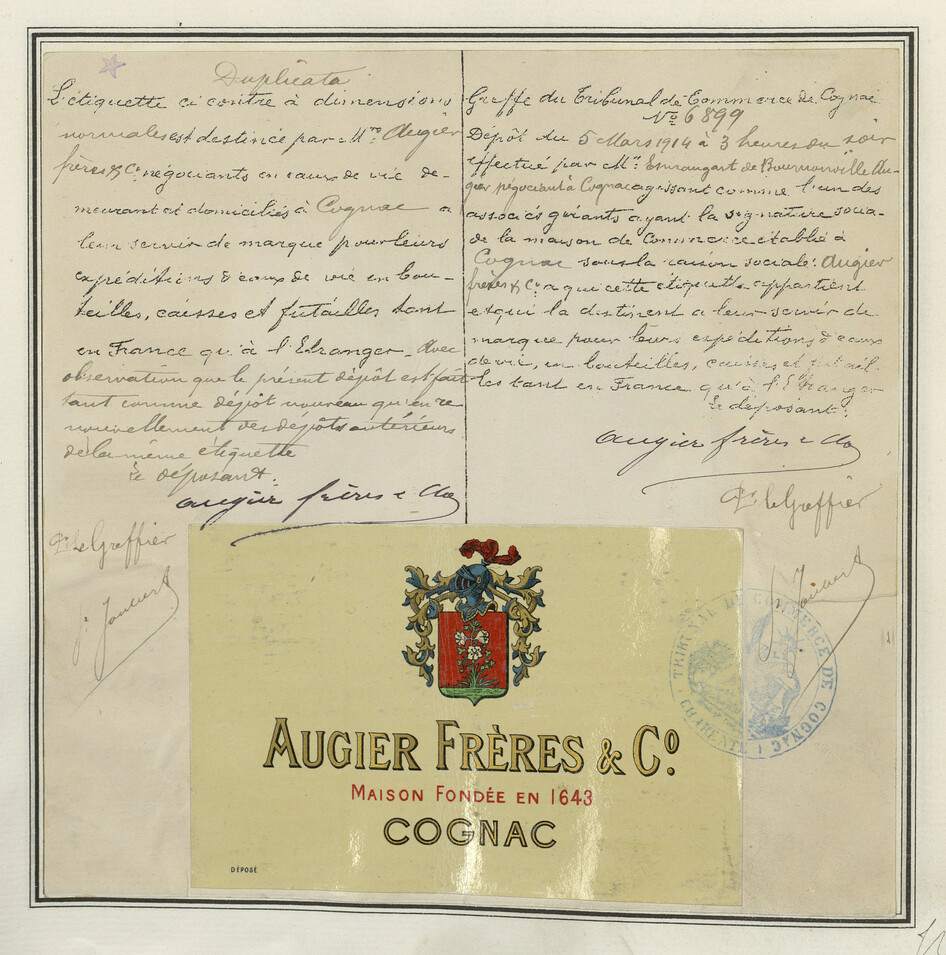 Duplicata
L'étiquette ci contre à dimensions
normales est destinée par Mrs Augier
frères & Co négociants en eaux de vie de-
meurant et domiciliés à Cognac a
leur servir de marque pour leurs
expéditions d'eaux de vie en bou-
teilles, caisses et futailles tant
en France qu'à l'Etranger. Avec
observation que le présent dépôt est fait
tant comme dépôt nouveau qu'en re
nouvellement des dépôts antérieurs
de la même étiquette
Le déposant.
Augier frères & Co
Pr le Greffier
Greffe du Tribunal de Commerce de Cognac
No 6899
Dépôt du 5 Mars 1914 à 3 heures du soir
effectué par Mr. Esmangart de Bournonville Au-
gier négociant à Cognac agissant comme l'un des
associés gérants ayant la signature socia-
de la maison de Commerce établie à
Cognac sous la raison sociale: Augier
frères & Co a qui cette étiquette appartient
et qui la destinent a leur servir de
marque pour leurs expéditions d'eaux
de vie, en bouteilles, caisses et futail
les tant en France qu'à l'Etranger
Le déposant:
Augier frères & Co
Pr le Greffier
TRIBUNAL DE COMMERCE DE COGNAC
CHARENTE
AUGIER FRÈRES & Co.
MAISON FONDÉE EN 1643
COGNAC
DÉPOSÉ